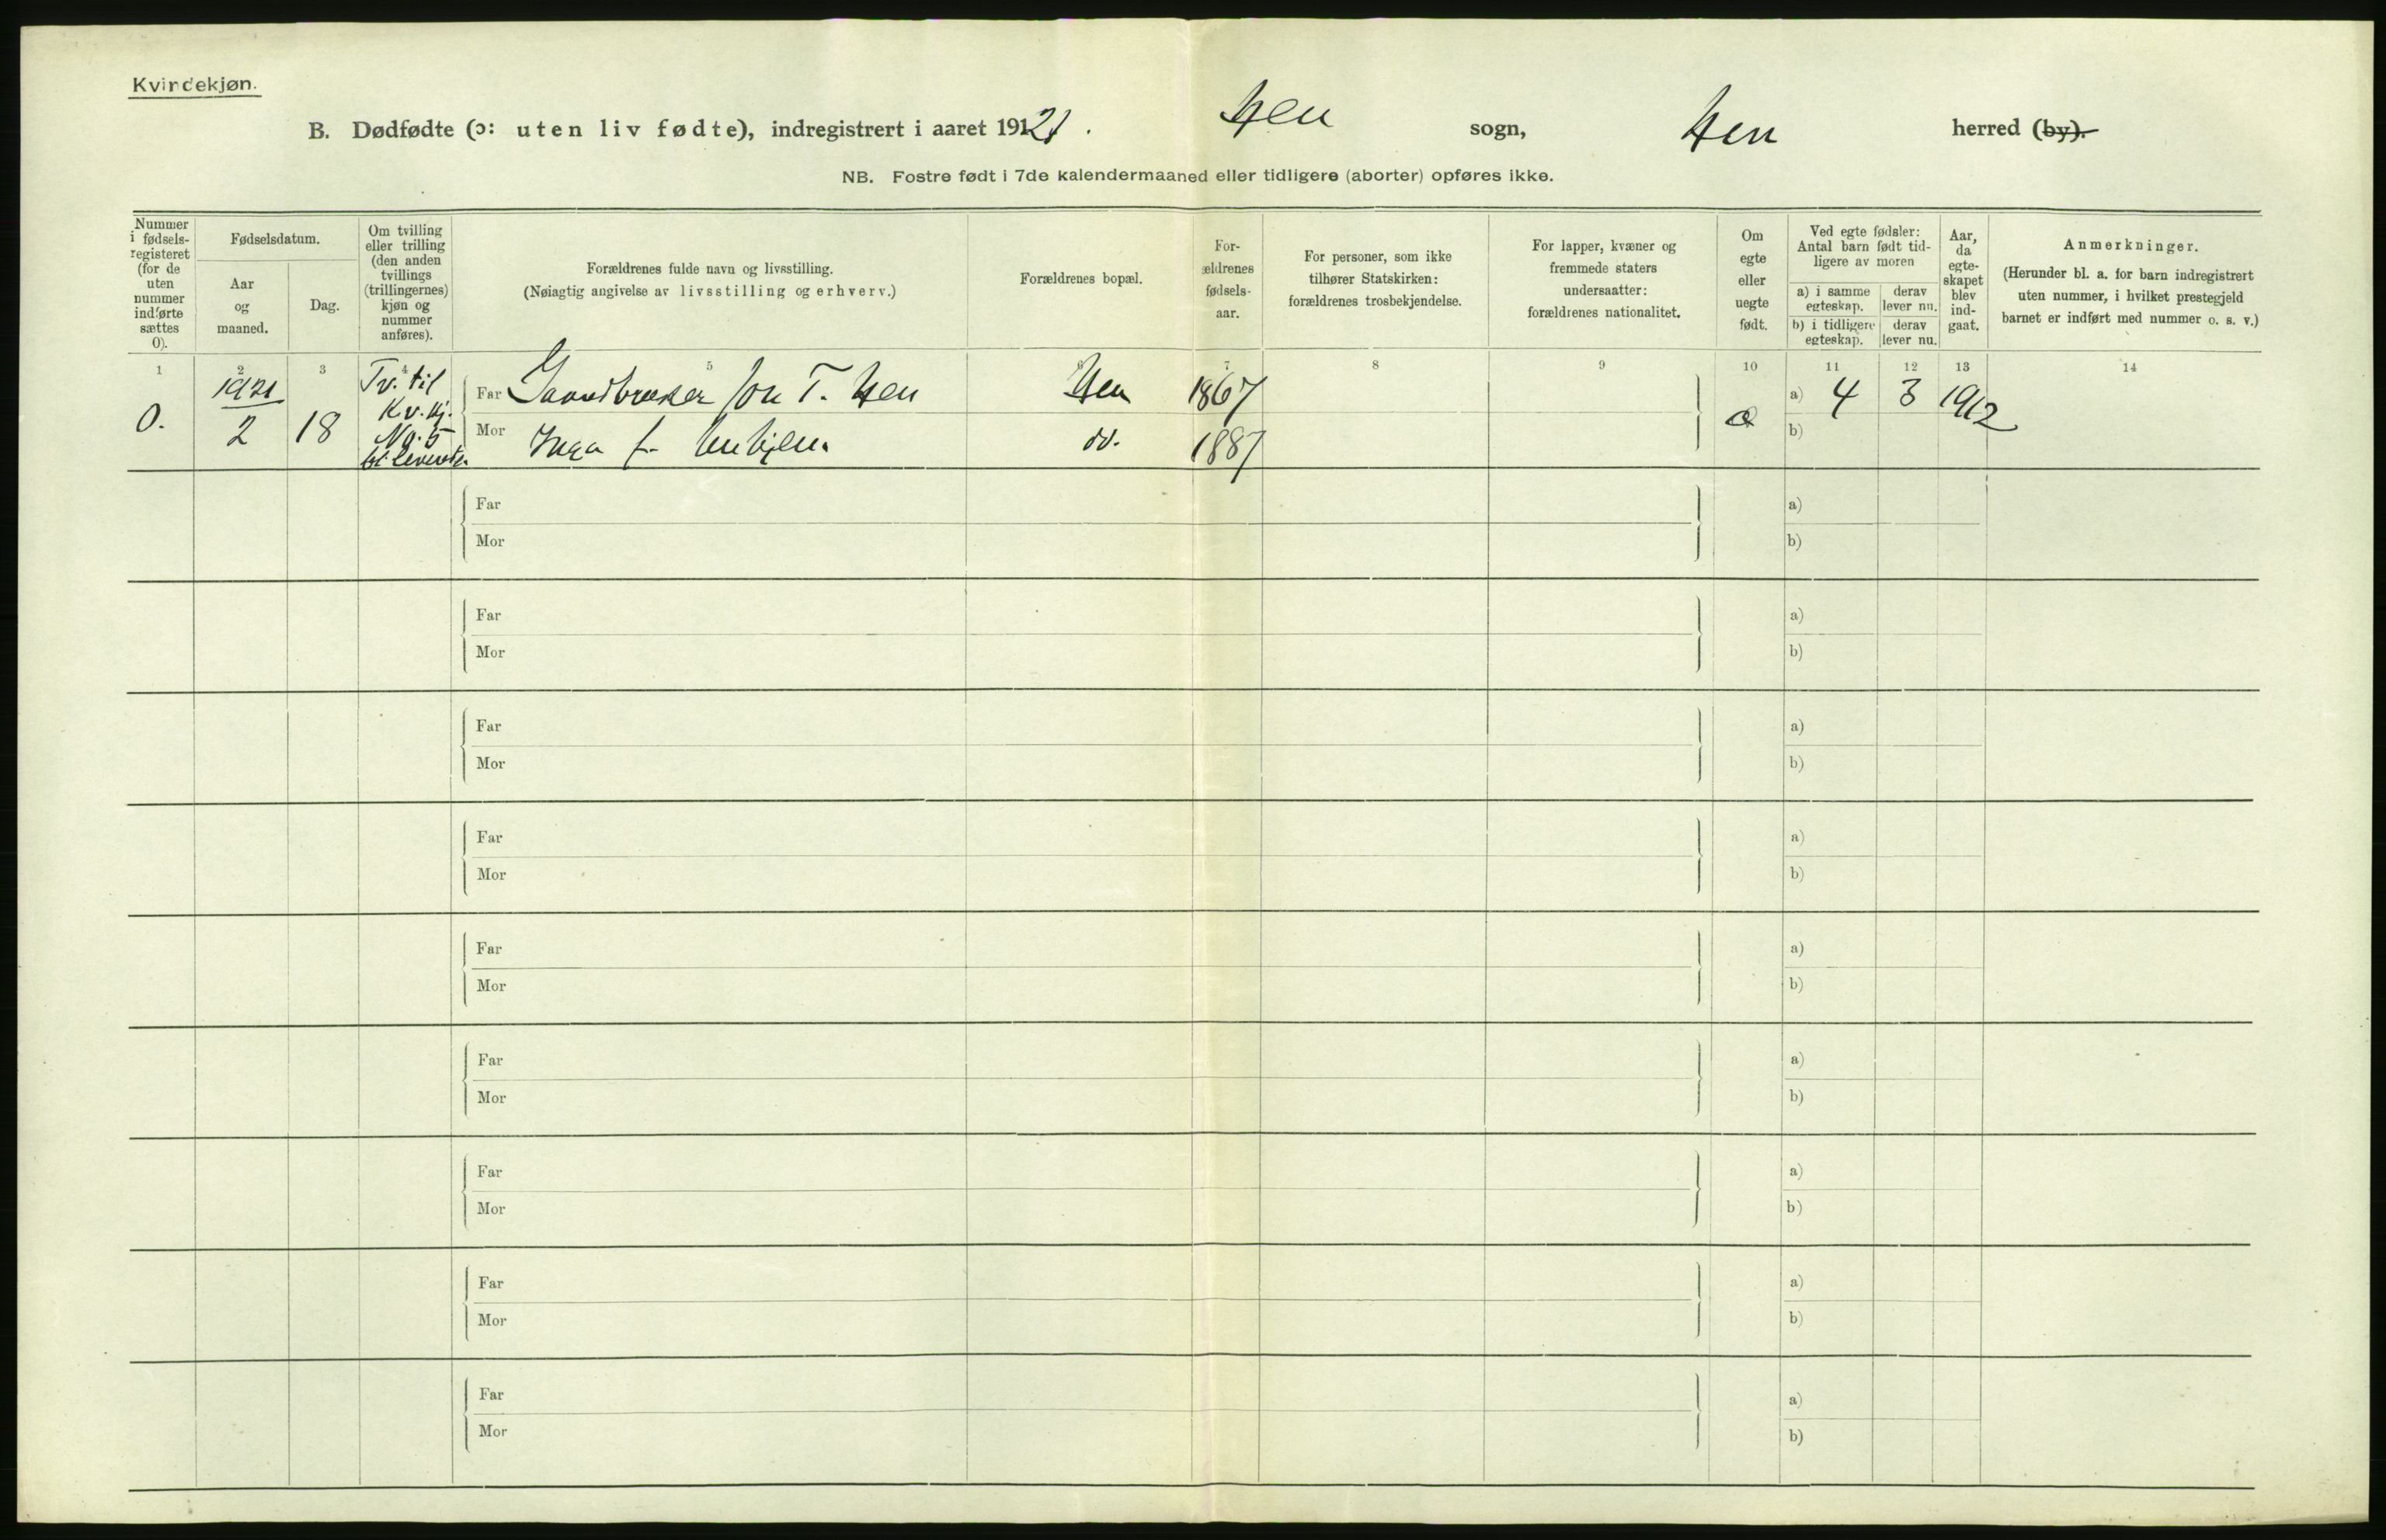 Kvindekjøn.
B. Dødfødte (ɔ: uten liv fødte), indregistrert i aaret 1921. Hen sogn, Hen herred (by).
NB. Fostre født i 7de kalendermaaned eller tidligere (aborter) opføres ikke.
Nummer i fødsels-registeret (for de uten nummer indførte sættes 0).
Fødselsdatum.
Aar og maaned.
Dag.
Om tvilling eller trilling (den anden tvillings (trillingernes) kjøn og nummer anføres).
Forældrenes fulde navn og livsstilling.
(Nøiagtig angivelse av livsstilling og erhverv.)
Forældrenes bopæl.
For-ældrenes fødsels-aar.
For personer, som ikke tilhører Statskirken: forældrenes trosbekjendelse.
For lapper, kvæner og fremmede staters undersaatter: forældrenes nationalitet.
Om egte eller uegte født.
Ved egte fødsler: Antal barn født tid-ligere av moren
a) i samme egteskap.
derav lever nu.
b) i tidligere egteskap.
derav lever nu.
Aar, da egte-skapet blev ind-gaat.
Anmerkninger.
(Herunder bl. a. for barn indregistrert uten nummer, i hvilket prestegjeld barnet er indført med nummer o. s. v.)
1 2 3 4 5 6 7 8 9 10 11 12 13 14
0. 1921 2 18 Tv. til Kv. kj. No. 5 bl. levende
Far Gaardbruker Jon T. Hen Hen 1867 e a) 4 3 1912
Mor Inga f. do. 1887 b)
Far a)
Mor b)
Far a)
Mor b)
Far a)
Mor b)
Far a)
Mor b)
Far a)
Mor b)
Far a)
Mor b)
Far a)
Mor b)
Far a)
Mor b)
Far a)
Mor b)